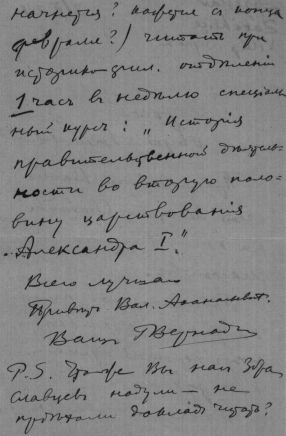 начнется? кажется съ конца
февраля?) читать при
историко-фил. отдѣленіи
1 часъ въ недѣлю спеціаль-
ный курсъ: „Исторія
правительственной дѣятель-
ности во вторую поло-
вину царствованія
Александра I".
Всего лучшаго
Привѣтъ Вал. Афанасьевичу.
Вашъ ГВернадскій
P.S. Вы насъ Збра
славцевъ надули — не
пріѣхали докладъ читать?